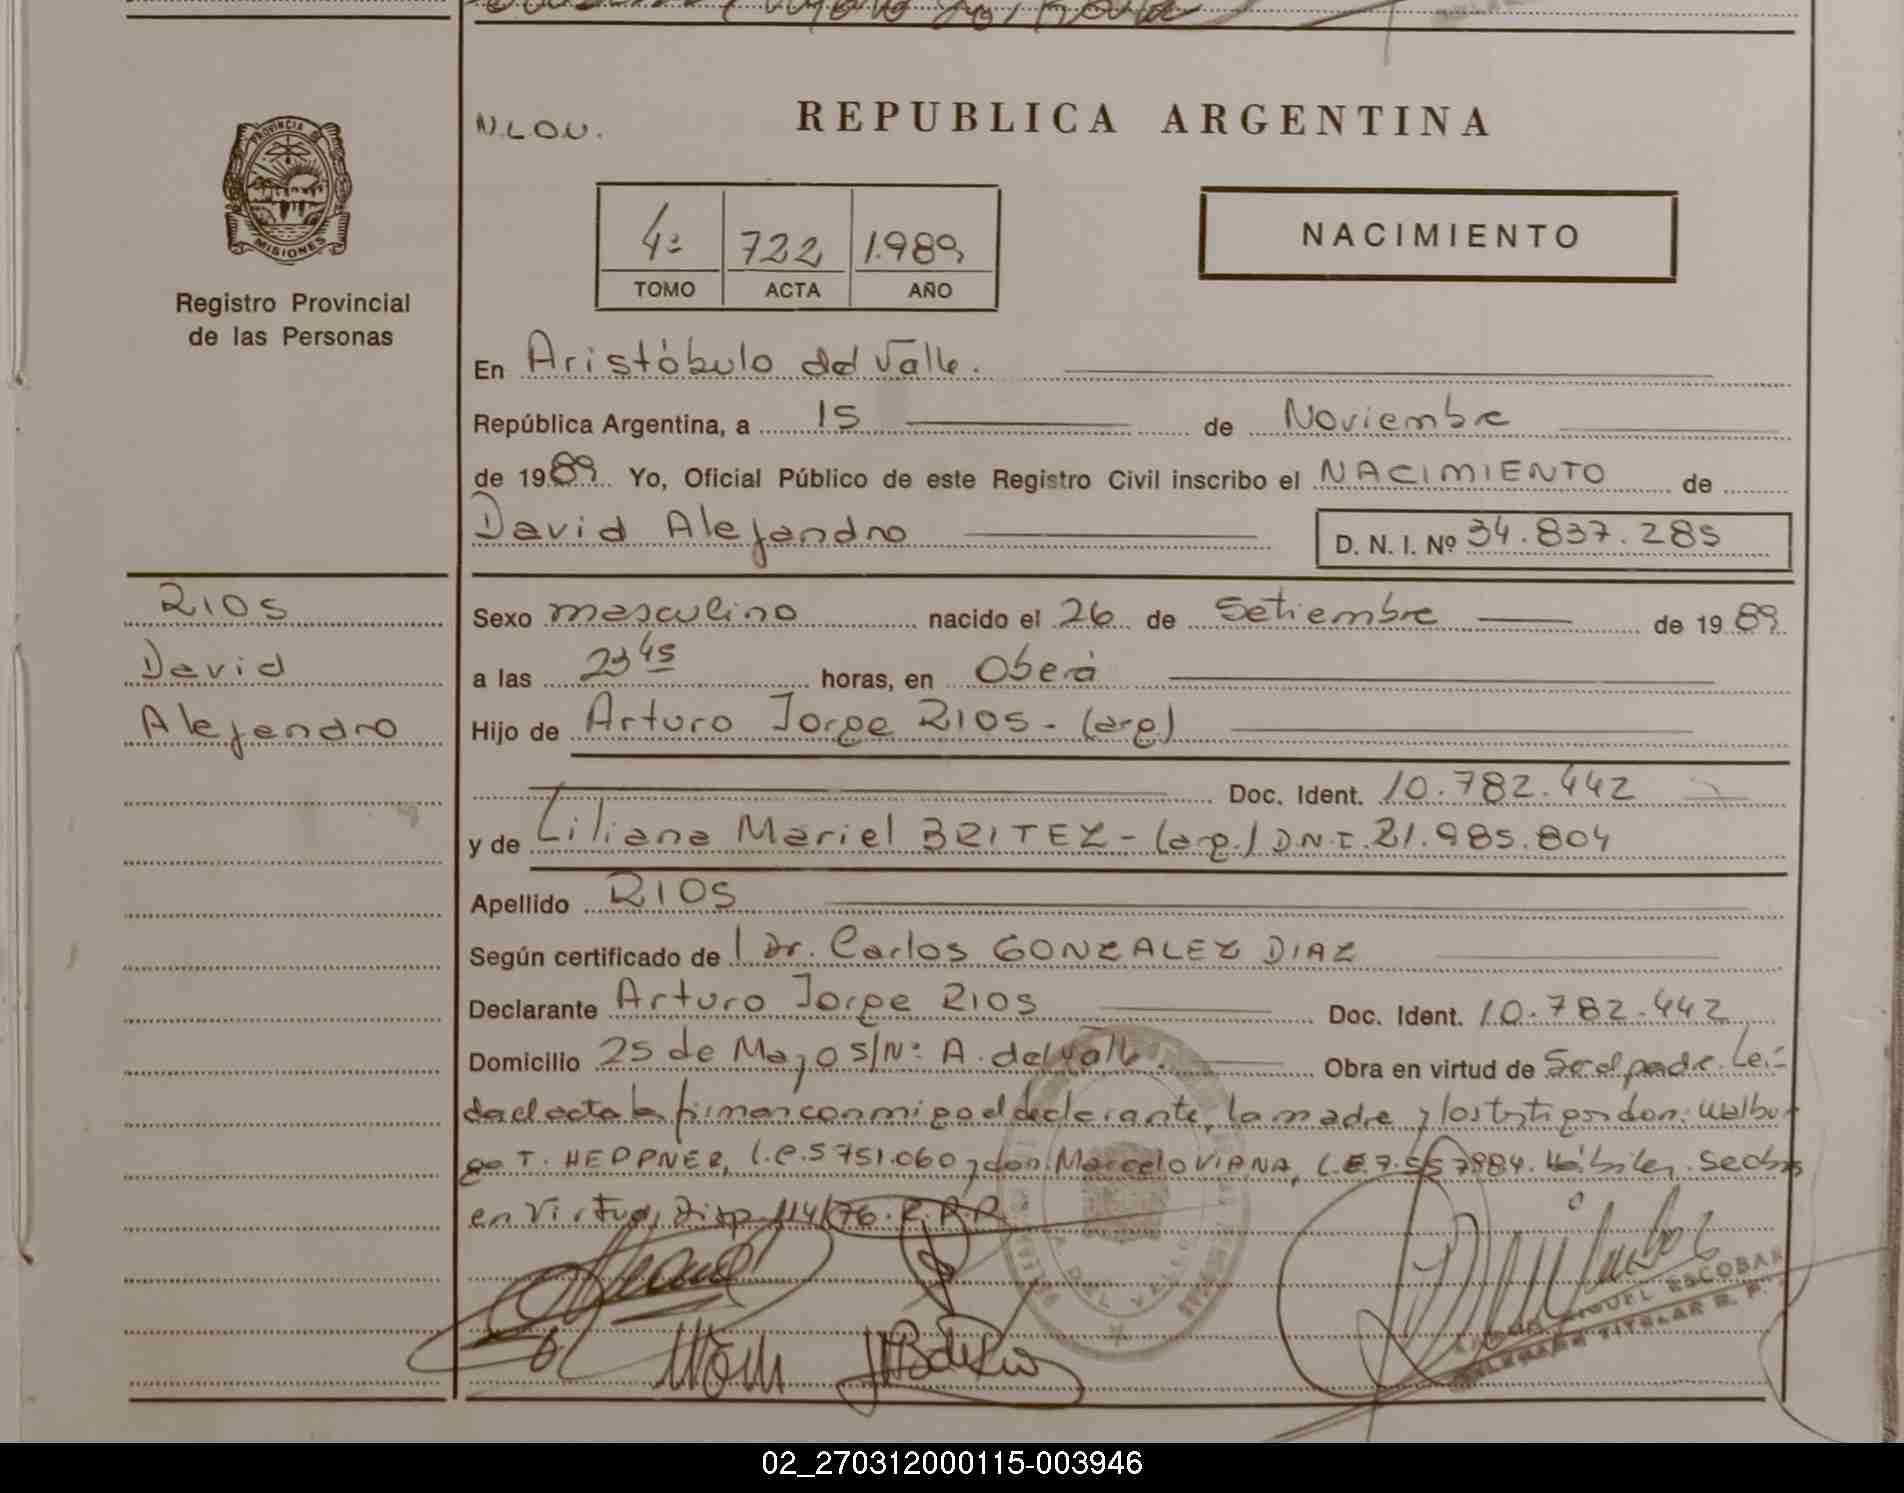 N.L.O.U.
REPUBLICA ARGENTINA
PROVINCIA DE
MISIONES
Registro Provincial
de las Personas
4º 722 1.989
TOMO ACTA AÑO
NACIMIENTO
En Aristóbulo del Valle.
República Argentina, a 15 de Noviembre
de 1989. Yo, Oficial Público de este Registro Civil inscribo el NACIMIENTO de
David Alejandro D. N. I. Nº 34.837.285
RIOS
David
Alejandro
Sexo masculino nacido el 26 de Setiembre de 1989
a las 23 45 horas, en Oberá
Hijo de Arturo Jorge RIOS - (arg)
Doc. Ident. 10.782.442
y de Liliana Mariel BRITEZ - (arg.) D.N.I. 21.985.804
Apellido RIOS
Según certificado de l Dr. Carlos GONZALEZ DIAZ
Declarante Arturo Jorge RIOS Doc. Ident. 10.782.442
Domicilio 25 de Mayo S/Nº A. del Valle. Obra en virtud de Ser el padre. Leí-
da el acta la firman conmigo el declarante, la madre y los testigos don: Walbur
go T. HEPPNER, L.E. 5751.060 y don Marcelo VIANA, L.E. 7.557984. Hábiles. Se obs
en virtud, Disp. 114/76. R.P.P.
A. DEL VALLE
MIGUEL ESCOBAR
TITULAR R. P.
02_270312000115-003946